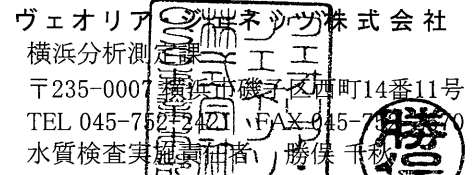 ヴェオリア・ジェネッツ株式会社
横浜分析測定課
〒235-0007 横浜市磯子区西町14番11号
TEL 045-752-2421 FAX 045-75
水質検査実施責任者 勝俣 千秋